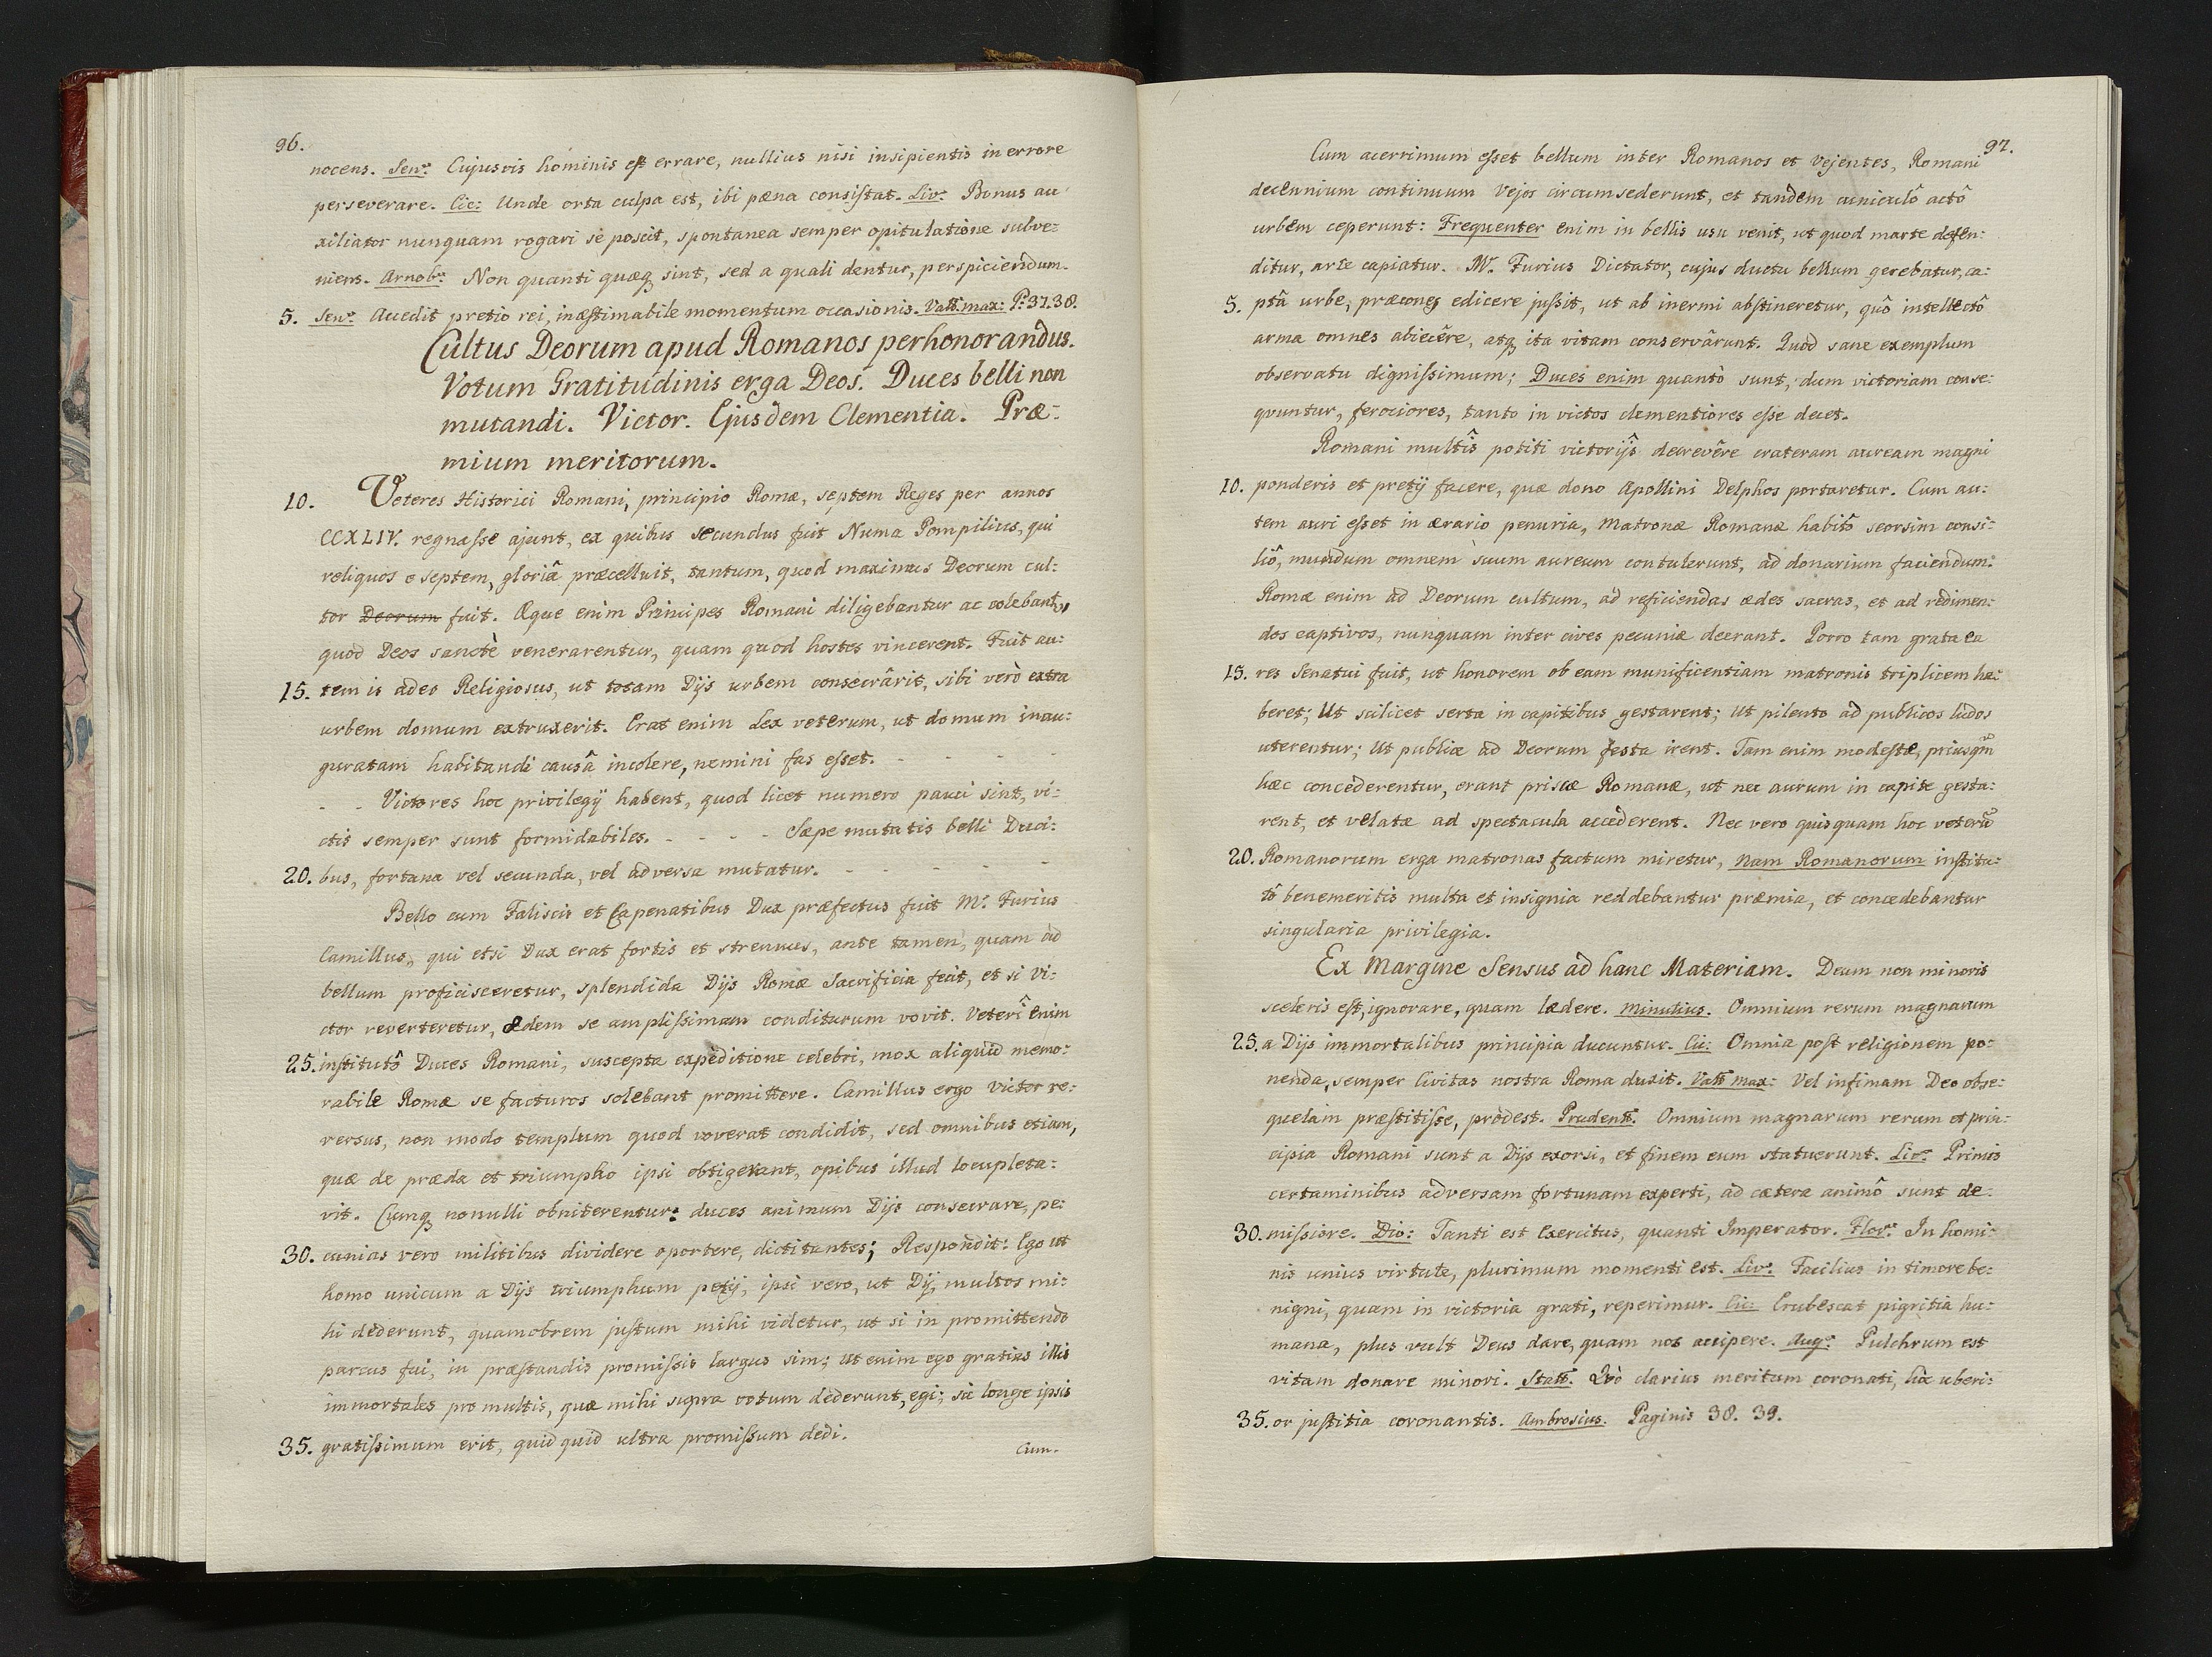 96.
nocens. Sen: Cujusvis hominis est errare, nullius nisi insipientis in errore
perseverare. Cic: Unde orta culpa est, ibi pæna consistat. Liv: Bonus au-
xiliator nunquam rogari se poscit, spontanea semper opitulatione subve-
niens. Arnob: Non quanti quæq sint, sed a quali dentur, perspiciendum.
5. Sen: Accedit pretio rei, inæstimabile momentum occasionis. Vall: max: P: 37.38.
Cultus Deorum apud Romanos perhonorandus.
Votum Gratitudinis erga Deos. Duces belli non
mutandi. Victor. Ejusdem Clementia. Præ-
mium meritorum.
10. Veteres Historici Romani, principio Romæ, septem Reges per annos
CCXLIV. regnasse ajunt, ex quibus secundus fuit Numa Pompilius, qui
reliquos e septem, gloriâ præcelluit, tantum, quod maximus Deorum cul-
tor Deorum fuit. Æque enim Principes Romani diligebantur ac colebant,
quod Deos sanctè venerarentur, quam quod hostes vincerent. Fuit au-
15. tem is adeo Religiosus, ut totam Dijs urbem consecrârit, sibi verò extra
urbem domum extruxerit. Erat enim Lex veterum, ut domum inau-
guratam habitandi causâ incolere, nemini fas esset. - - - -
- - Victores hoc privilegij habent, quod licet numero pauci sint, vi-
ctis semper sunt formidabiles. - - - - Sæpe mutatis belli Duci-
20. bus, fortuna vel secunda, vel adversa mutatur. - - - - -
Bello cum Faliscis et Capenatibus Dux præfectus fuit M. Furius
Camillus, qui etsi Dux erat fortis et strenuus, ante tamen, quam ad
bellum proficisceretur, splendida Dijs Romæ Sacrificia fecit, et si vi-
ctor reverteretur, ædem se amplissimam conditurum vovit. Veterî enim
25. institutô Duces Romani, suscepta expeditione celebri, mox aliquid memo-
rabile Romæ se facturos solebant promittere. Camillus ergo Victor re-
versus, non modo templum quod voverat condidit, sed omnibus etiam,
quæ de præda et triumpho ipsi obtigerant, opibus illud locupleta-
vit. Cumq nonulli obniterentur: duces animum Dijs consecrare, pe-
30. cunias vero militibus dividere oportere, dictitantes; Respondit: Ego ut
homo unicum a Dijs triumphum petij, ipsi vero, ut Dij, multos mi-
hi dederunt, quamobrem justum mihi videtur, ut si in promittendo
parcus fui, in præstandis promissis largus sim; ut enim ego gratias illis
immortales pro multis, quæ mihi supra votum dederunt, egi; sic longe ipsis
35. gratissimum erit, quidquid ultra promissum dedi.
Cum.
97.
Cum acerrimum esset bellum inter Romanos et Vejentes, Romani
decennium continuum Vejos circumsederunt, et tandem cuniculô actô
urbem ceperunt: Frequenter enim in bellis usu venit, ut quod marte defen-
ditur, arte capiatur. M. Furius Dictator, cujus ductu bellum gerebatur, ca-
5. ptâ urbe, præcones edicere jussit, ut ab inermi abstineretur, quô intellectô
arma omnes abiecêre, atq ita vitam conservârunt. Quod sane exemplum
observatu dignissimum; Duces enim quantò sunt, dum victoriam conse-
quuntur, ferociores, tanto in victos clementiores esse decet.
Romani multîs potiti victorijs decrevêre crateram auream magni
10. ponderis et pretij facere, quæ dono Apollini Delphos portaretur. Cum au-
tem auri esset in ærario penuria, Matronæ Romanæ habitô seorsim consi-
liô, mundum omnem suum aureum contulerunt, ad donarium faciendum:
Romæ enim ad Deorum cultum, ad reficiendas ædes sacras, et ad redimen-
dos captivos, nunquam inter cives pecuniæ deerant. Porro tam grata ea
15. res Senatui fuit, ut honorem ob eam munificentiam matronis triplicem ha-
beret; Ut scilicet serta in capitibus gestarent; Ut pilento ad publicos ludos
uterentur; Ut publice ad Deorum festa irent. Tam enim modestæ, priusqm
hæc concederentur, erant priscæ Romanæ, ut nec aurum in capite gesta-
rent, et velatæ ad spectacula accederent. Nec vero quisquam hoc veterũ
20. Romanorum erga matronas factum miretur, Nam Romanorum institu-
tô benemeritis multa et insignia reddebantur præmia, et concedebantur
singularia privilegia.
Ex Margine Sensus ad hanc Materiam. Deum non minoris
sceleris est, ignorare, quam lædere. Minutius. Omnium rerum magnarum
25. a Dijs immortalibus principia ducuntur. Cic: Omnia post religionem po-
nenda, semper Civitas nostra Roma duxit. Vall max: Vel infimam Deo obse-
quelam præstitisse, prodest. Prudent. Omnium magnarum rerum et prin-
cipia Romani sunt a Dijs exorsi, et finem eum statuerunt. Liv: Primis
certaminibus adversam fortunam experti, ad cætera animô sunt de-
30. missiore. Dio: Tanti est Exercitus, quanti Imperator. Flor: In homi-
nis unius virtute, plurimum momenti est. Liv: Facilius in timore be-
nigni, quam in victoria grati, reperimur. Cic: Erubescat pigritia hu-
mana, plus vult Deus dare, quam nos accipere. Aug: Pulchrum est
vitam donare minori. Statt. Quò clarius meritum coronati, hoc uberi-
35. or justitia coronantis. Ambrosius. Paginis 38. 39.